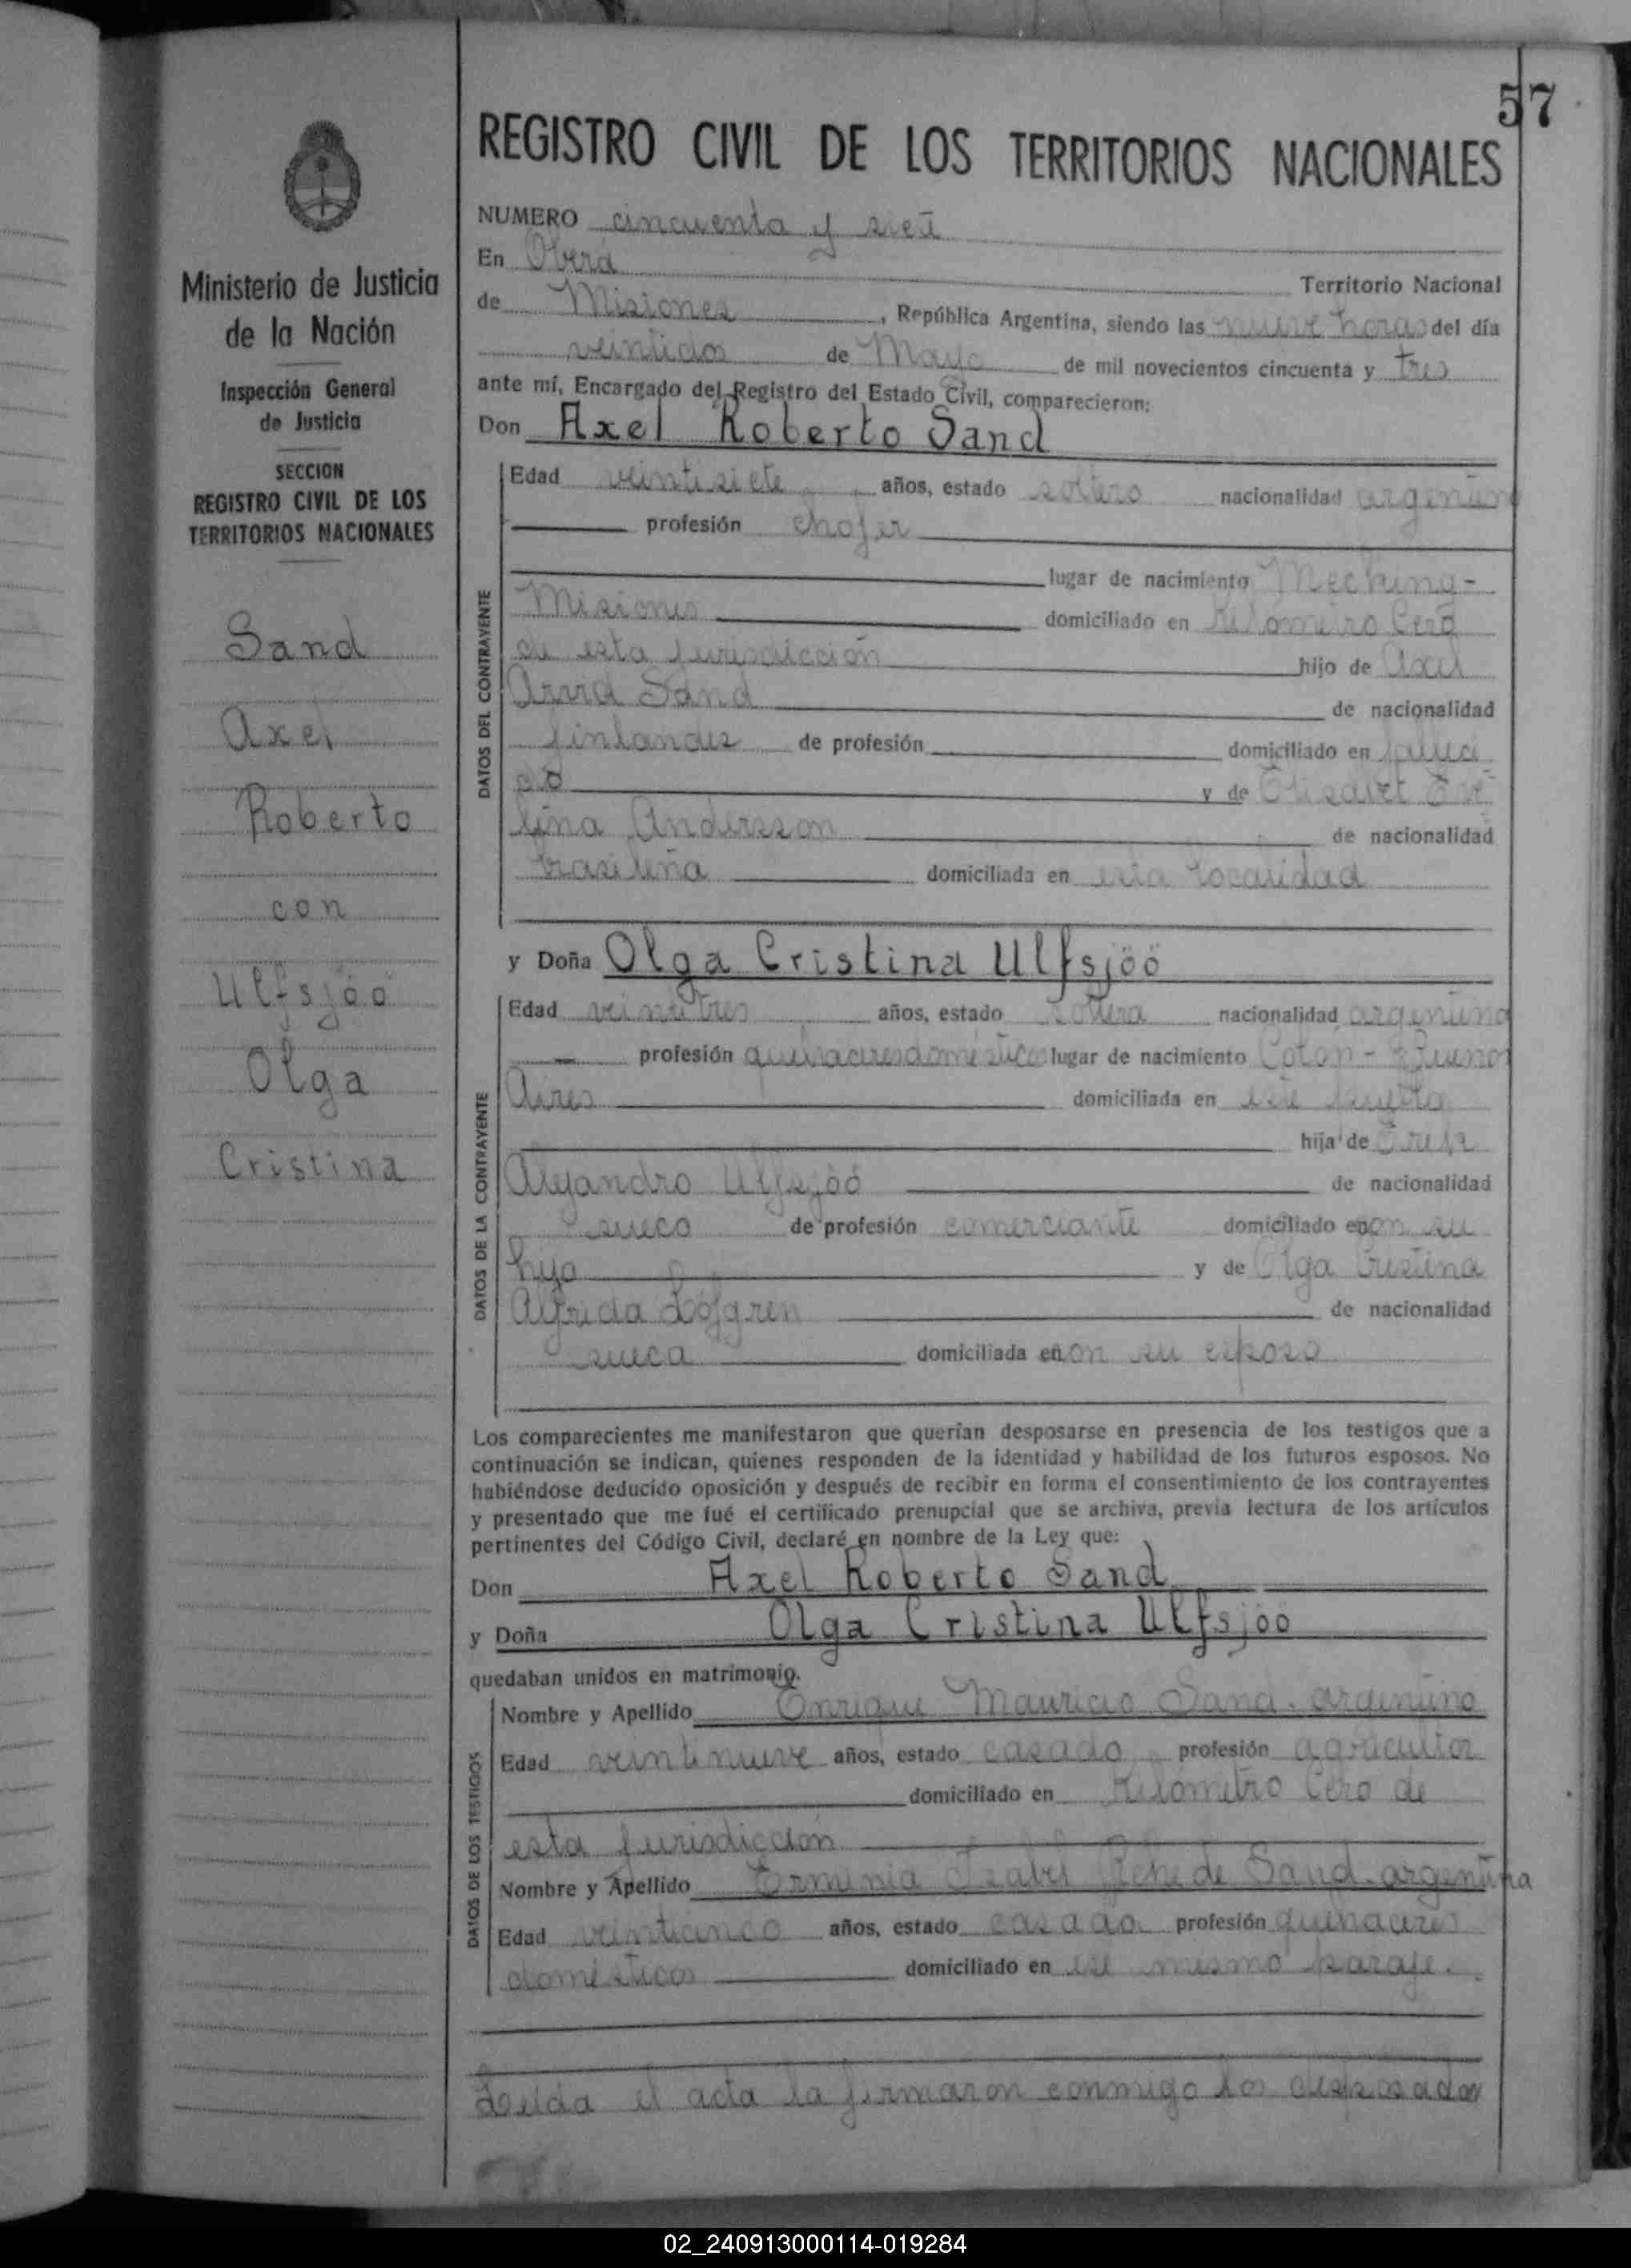 57
REGISTRO CIVIL DE LOS TERRITORIOS NACIONALES
Ministerio de Justicia
de la Nación
Inspección General
de Justicia
SECCION
REGISTRO CIVIL DE LOS
TERRITORIOS NACIONALES
Sand
Axel
Roberto
con
Ulfsjöö
Olga
Cristina
NUMERO cincuenta y siete
En Oberá Territorio Nacional
de Misiones, República Argentina, siendo las nueve horas del día
veintidos de Mayo de mil novecientos cincuenta y tres
ante mí, Encargado del Registro del Estado Civil, comparecieron:
Don Axel Roberto Sand
DATOS DEL CONTRAYENTE
Edad veintisiete años, estado soltero nacionalidad argentino
profesión chofer
lugar de nacimiento Mecking-
Misiones domiciliado en Kilómetro Cero
de esta jurisdicción hijo de Axel
Arvid Sand de nacionalidad
finlandes de profesión domiciliado en falleci
do y de Elisabet Eve
lina Andersson de nacionalidad
brasileña domiciliada en esta localidad
y Doña Olga Cristina Ulfsjöö
DATOS DE LA CONTRAYENTE
Edad veintitres años, estado soltera nacionalidad argentina
profesión quehaceres domésticos lugar de nacimiento Colón - Buenos
Aires domiciliada en este pueblo
hija de Erik
Alejandro Ulfsjöö de nacionalidad
sueco de profesión comerciante domiciliado con su
hija y de Olga Cristina
Alfrida Löfgren de nacionalidad
sueca domiciliada con su esposo
Los comparecientes me manifestaron que querían desposarse en presencia de los testigos que a
continuación se indican, quienes responden de la identidad y habilidad de los futuros esposos. No
habiéndose deducido oposición y después de recibir en forma el consentimiento de los contrayentes
y presentado que me fué el certificado prenupcial que se archiva, previa lectura de los artículos
pertinentes del Código Civil, declaré en nombre de la Ley que:
Don Axel Roberto Sand
y Doña Olga Cristina Ulfsjöö
quedaban unidos en matrimonio.
DATOS DE LOS TESTIGOS
Nombre y Apellido Enrique Mauricio Sand - argentino
Edad veintinueve años, estado casado profesión agricultor
domiciliado en Kilómetro Cero de
esta jurisdicción
Nombre y Apellido Erminia Isabel de Sand - argentina
Edad veinticinco años, estado casada profesión quehaceres
domésticos domiciliado en ese mismo paraje.
Leída el acta la firmaron conmigo los desposados
02_240913000114-019284